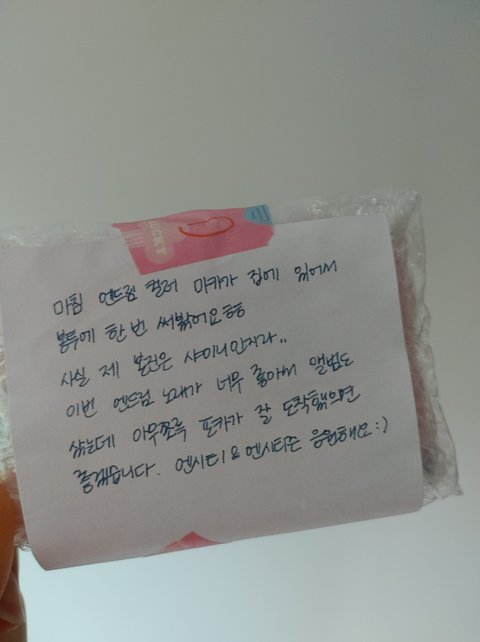 LUCKY
마침 엔드림 컬러 마카가 집에 있어서
봉투에 한 번 써봤어요ㅎㅎ
사실 제 본진은 샤이니인지라..
이번 엔드림 노래가 너무 좋아서 앨범도
샀는데 아무쪼록 포카가 잘 도착했으면
좋겠습니다. 엔시티&엔시티즌 응원해요:)